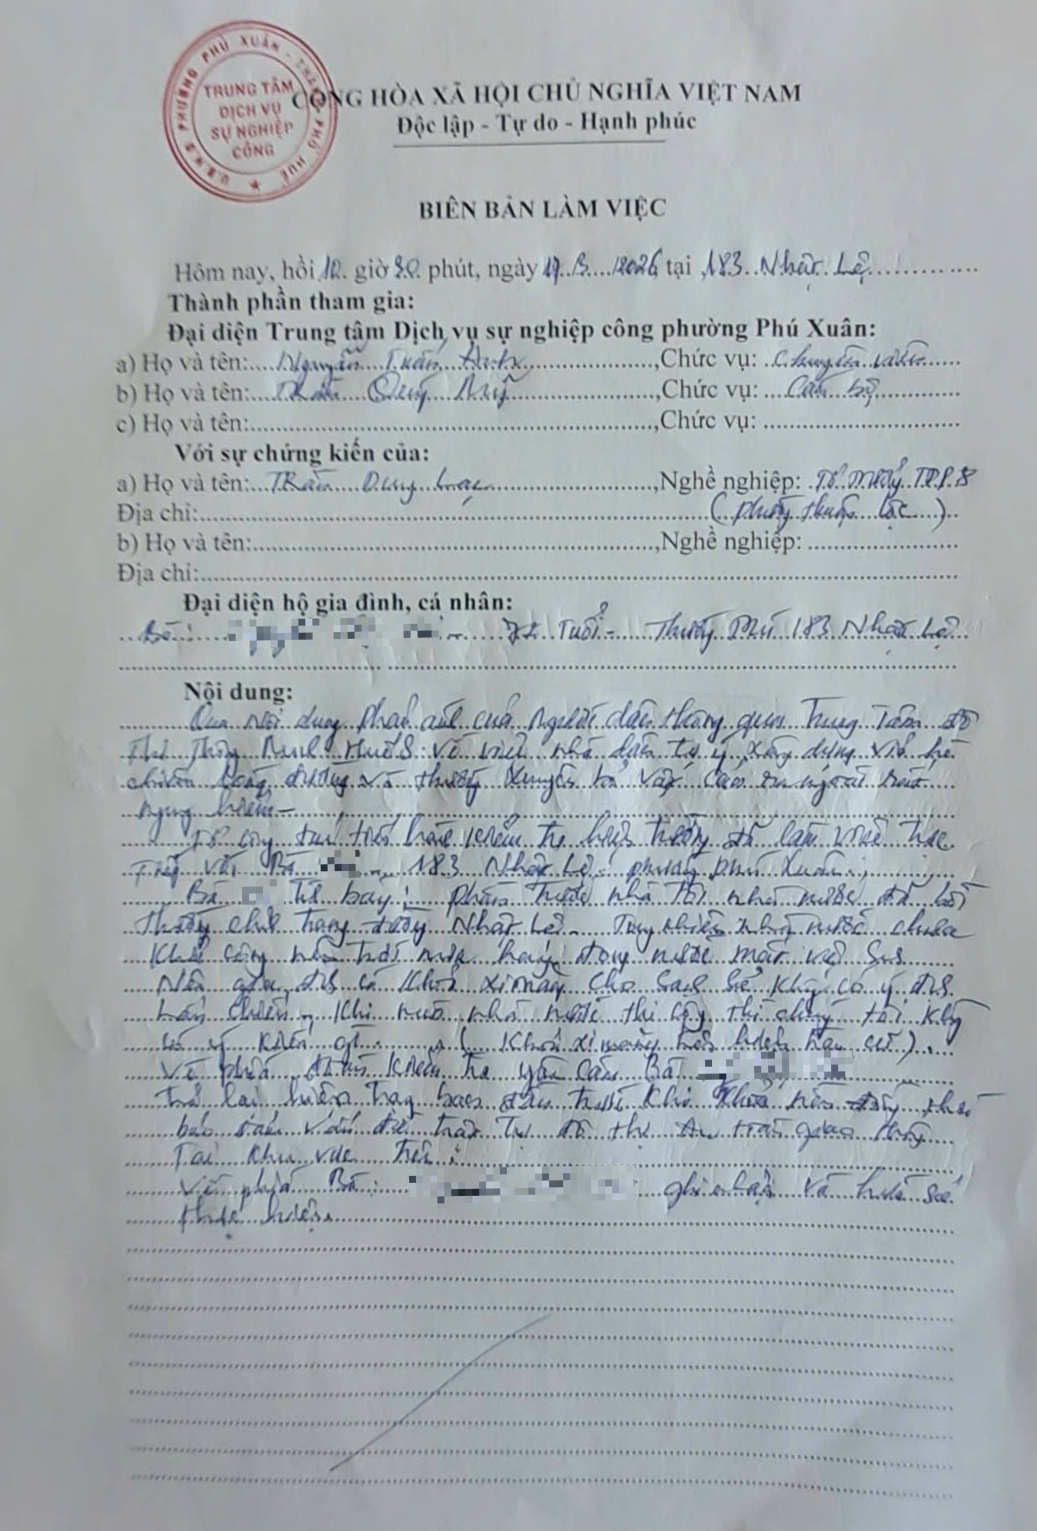 U.B.N.D PHƯỜNG PHÚ XUÂN - THÀNH PHỐ HUẾ
TRUNG TÂM
DỊCH VỤ
SỰ NGHIỆP
CÔNG
CỘNG HÒA XÃ HỘI CHỦ NGHĨA VIỆT NAM
Độc lập - Tự do - Hạnh phúc
BIÊN BẢN LÀM VIỆC
Hôm nay, hồi 10 giờ 30 phút, ngày 2026 tại 183 Nhật Lệ
Thành phần tham gia:
Đại diện Trung tâm Dịch vụ sự nghiệp công phường Phú Xuân:
a) Họ và tên: Nguyễn Tuấn Anh, Chức vụ: Chuyên viên
b) Họ và tên: Trần Quý Mỹ, Chức vụ: Cán bộ
c) Họ và tên:, Chức vụ:
Với sự chứng kiến của:
a) Họ và tên: Trần Duy, Nghề nghiệp: Tổ trưởng TDP 8
Địa chỉ: (phường Thuận Lộc)
b) Họ và tên:, Nghề nghiệp:
Địa chỉ:
Đại diện hộ gia đình, cá nhân:
Bà: 72 Tuổi - Thường trú 183 Nhật Lệ
Nội dung:
Qua nội dung phản ánh của người dân thông qua Trung tâm đô
thị thông minh HueS về việc nhà dân tự ý xây dựng vỉa hè
chiếm lòng đường và thường xuyên bỏ vật cản ra ngoài rất
nguy hiểm -
Tổ công tác tiến hành kiểm tra hiện trường đã làm việc trực
tiếp với Bà 183 Nhật Lệ, phường Phú Xuân
Bà trình bày: phần trước nhà tôi nhà nước đã bồi
thường chỉnh trang đường Nhật Lệ. Tuy nhiên nhà nước chưa
thi công nên trời mưa hay đọng nước mất vệ sinh
Nên gia đình có khối xi măng cho sạch sẽ không có ý định
lấn chiếm, khi nào nhà nước thi công thì chúng tôi không
có ý kiến gì. (Khối xi măng hiện hữu).
Về phía đoàn kiểm tra yêu cầu Bà
trả lại hiện trạng ban đầu trước khi đảm
bảo trật tự đô thị an toàn giao thông
Tại khu vực trên.
Về phía Bà: ghi nhận và hứa sẽ
thực hiện.